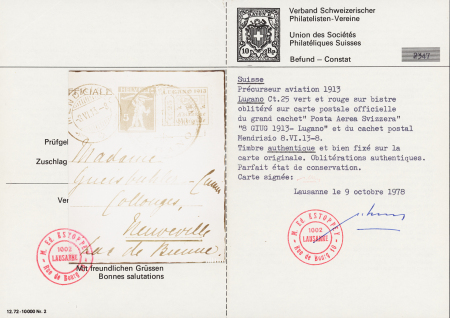 Verband Schweizerischer
Philatelisten-Vereine
Union des Sociétés
Philatéliques Suisses
Befund – Constat
2347
10 Rp.
Suisse
Précurseur aviation 1913
Lugano Ct.25 vert et rouge sur bistre
oblitéré sur carte postale officielle
du grand cachet" Posta Aerea Svizzera"
"8 GIUG 1913- Lugano" et du cachet postal
Mendrisio 8.VI.13-8.
Timbre authentique et bien fixé sur la
carte originale. Oblitérations authentiques.
Parfait état de conservation.
Carte signée:
Lausanne le 9 octobre 1978
M. de ESTOPPEY
1002
LAUSANNE
Rue de Bourg 10
Prüfgel
Zuschlag
Ver
Madame
Collonges,
Neuveville
Lac de Bienne
M. de ESTOPPEY
1002
LAUSANNE
Rue de Bourg
Mit freundlichen Grüssen
Bonnes salutations
12.72-10000 Nr. 2